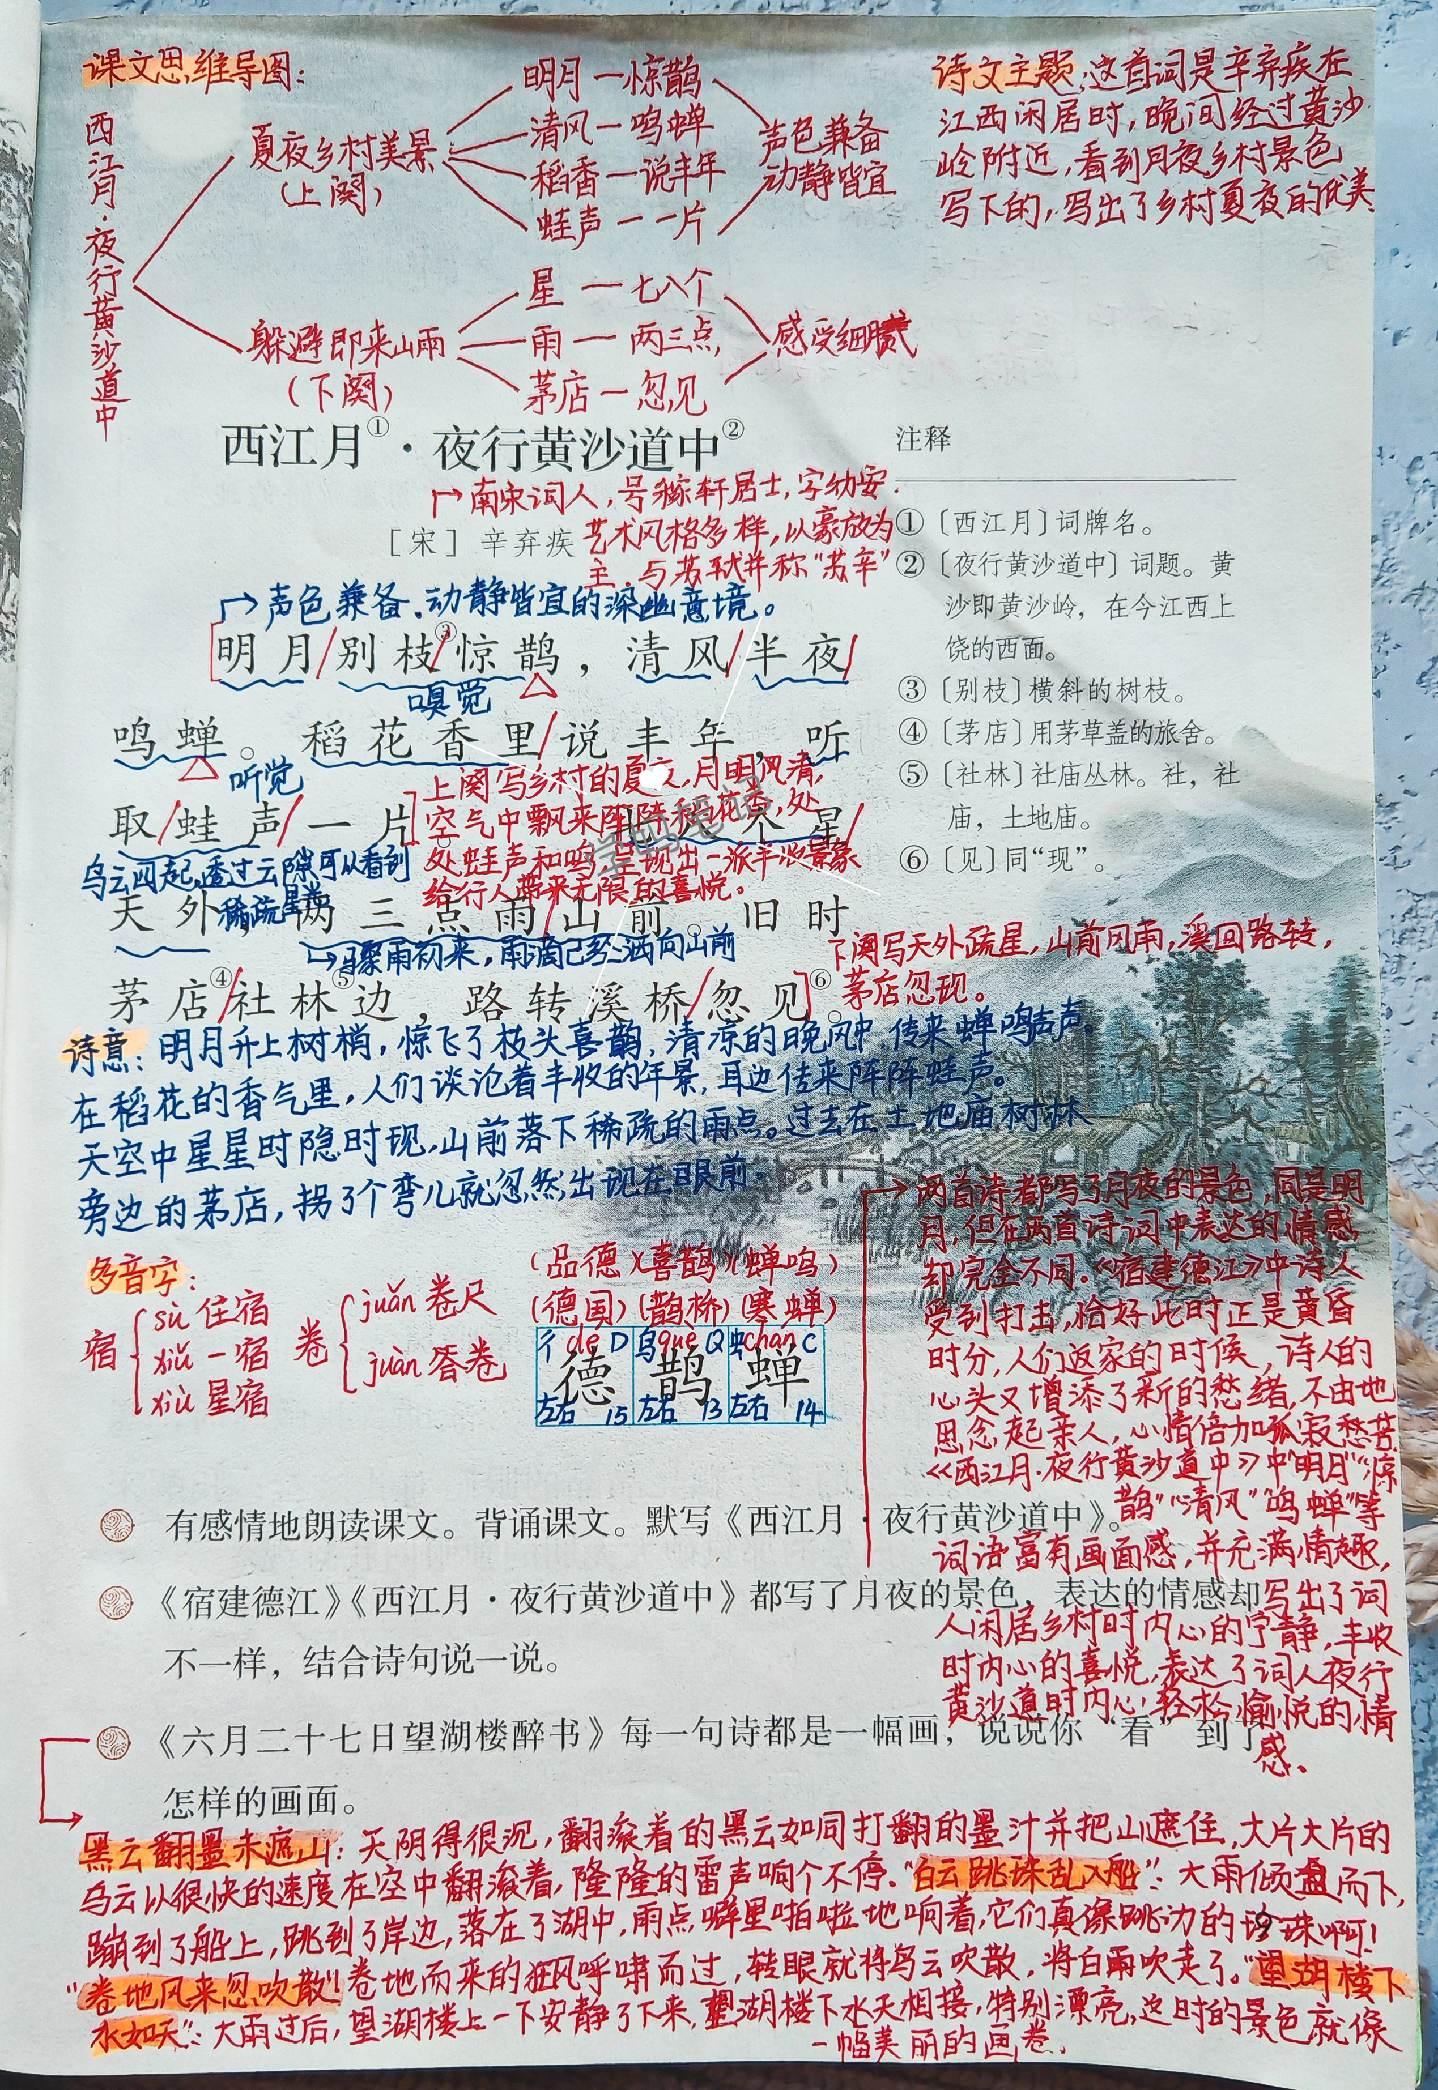 课文思维导图：
西江月·夜行黄沙道中
夏夜乡村美景
（上阕）
明月—惊鹊
清风—鸣蝉
稻香—说丰年
蛙声—一片
声色兼备
动静皆宜
躲避即来山雨
（下阕）
星—七八个
雨—两三点
茅店—忽见
感受细腻
诗文主题：这首词是辛弃疾在
江西闲居时，晚间经过黄沙
岭附近，看到月夜乡村景色
写下的，写出了乡村夏夜的优美
西江月①·夜行黄沙道中②
南宋词人，号稼轩居士，字幼安．
［宋］ 辛弃疾 艺术风格多样，以豪放为
主．与苏轼并称“苏辛”
声色兼备．动静皆宜的深幽意境。
明月/别枝③/惊鹊，清风/半夜/
嗅觉
鸣蝉。稻花香里/说丰年，听
听觉
取/蛙声/一片。七八个星/
上阕写乡村的夏夜，月明风清，
空气中飘来阵阵稻花香，处
处蛙声和鸣，呈现出一派丰收景象
给行人带来无限的喜悦。
乌云四起，透过云隙可以看到
稀疏星卷
天外，两三点雨/山前。旧时
骤雨初来，雨滴已经洒向山前
茅店④/社林⑤边，路转溪桥/忽见⑥。
下阕写天外疏星，山前风雨，溪回路转，
茅店忽现。
注释
①〔西江月〕词牌名。
②〔夜行黄沙道中〕词题。黄
沙即黄沙岭，在今江西上
饶的西面。
③〔别枝〕横斜的树枝。
④〔茅店〕用茅草盖的旅舍。
⑤〔社林〕社庙丛林。社，社
庙，土地庙。
⑥〔见〕同“现”。
学妈笔记
诗意：明月升上树梢，惊飞了枝头喜鹊，清凉的晚风中，传来蝉鸣声声。
在稻花的香气里，人们谈论着丰收的年景，耳边传来阵阵蛙声。
天空中星星时隐时现，山前落下稀疏的雨点。过去在土地庙树林
旁边的茅店，拐了个弯儿就忽然出现在眼前．
多音字：
宿
sù 住宿
xiǔ 一宿
xiù 星宿
卷
juǎn 卷尺
juàn 答卷
（品德）（喜鹊）（蝉鸣）
（德国）（鹊桥）（寒蝉）
彳 dé D 鸟 què Q 虫 chán C
德 鹊 蝉
左右 15 左右 13 左右 14
两首诗都写了月夜的景色，同是明
月，但在两首诗词中表达的情感
却完全不同．《宿建德江》中诗人
受到打击，恰好此时正是黄昏
时分，人们返家的时候，诗人的
心头又增添了新的愁绪，不由地
思念起亲人，心情倍加孤寂愁苦
《西江月·夜行黄沙道中》中“明月”“惊
鹊”“清风”“鸣蝉”等
词语富有画面感，并充满情趣，
写出了词
人闲居乡村时内心的宁静，丰收
时内心的喜悦，表达了词人夜行
黄沙道时内心轻松愉悦的情
感。
有感情地朗读课文。背诵课文。默写《西江月·夜行黄沙道中》。
《宿建德江》《西江月·夜行黄沙道中》都写了月夜的景色，表达的情感却
不一样，结合诗句说一说。
《六月二十七日望湖楼醉书》每一句诗都是一幅画，说说你“看”到了
怎样的画面。
黑云翻墨未遮山：天阴得很沉，翻滚着的黑云如同打翻的墨汁并把山遮住，大片大片的
乌云以很快的速度在空中翻滚着，隆隆的雷声响个不停．“白云跳珠乱入船”：大雨倾盆而下，
蹦到了船上，跳到了岸边，落在了湖中，雨点噼里啪啦地响着，它们真像跳动的珍珠啊！
9
“卷地风来忽吹散”：卷地而来的狂风呼啸而过，转眼就将乌云吹散，将白雨吹走了．“望湖楼下
水如天”：大雨过后，望湖楼上一下安静了下来，望湖楼下水天相接，特别漂亮，这时的景色就像
一幅美丽的画卷．